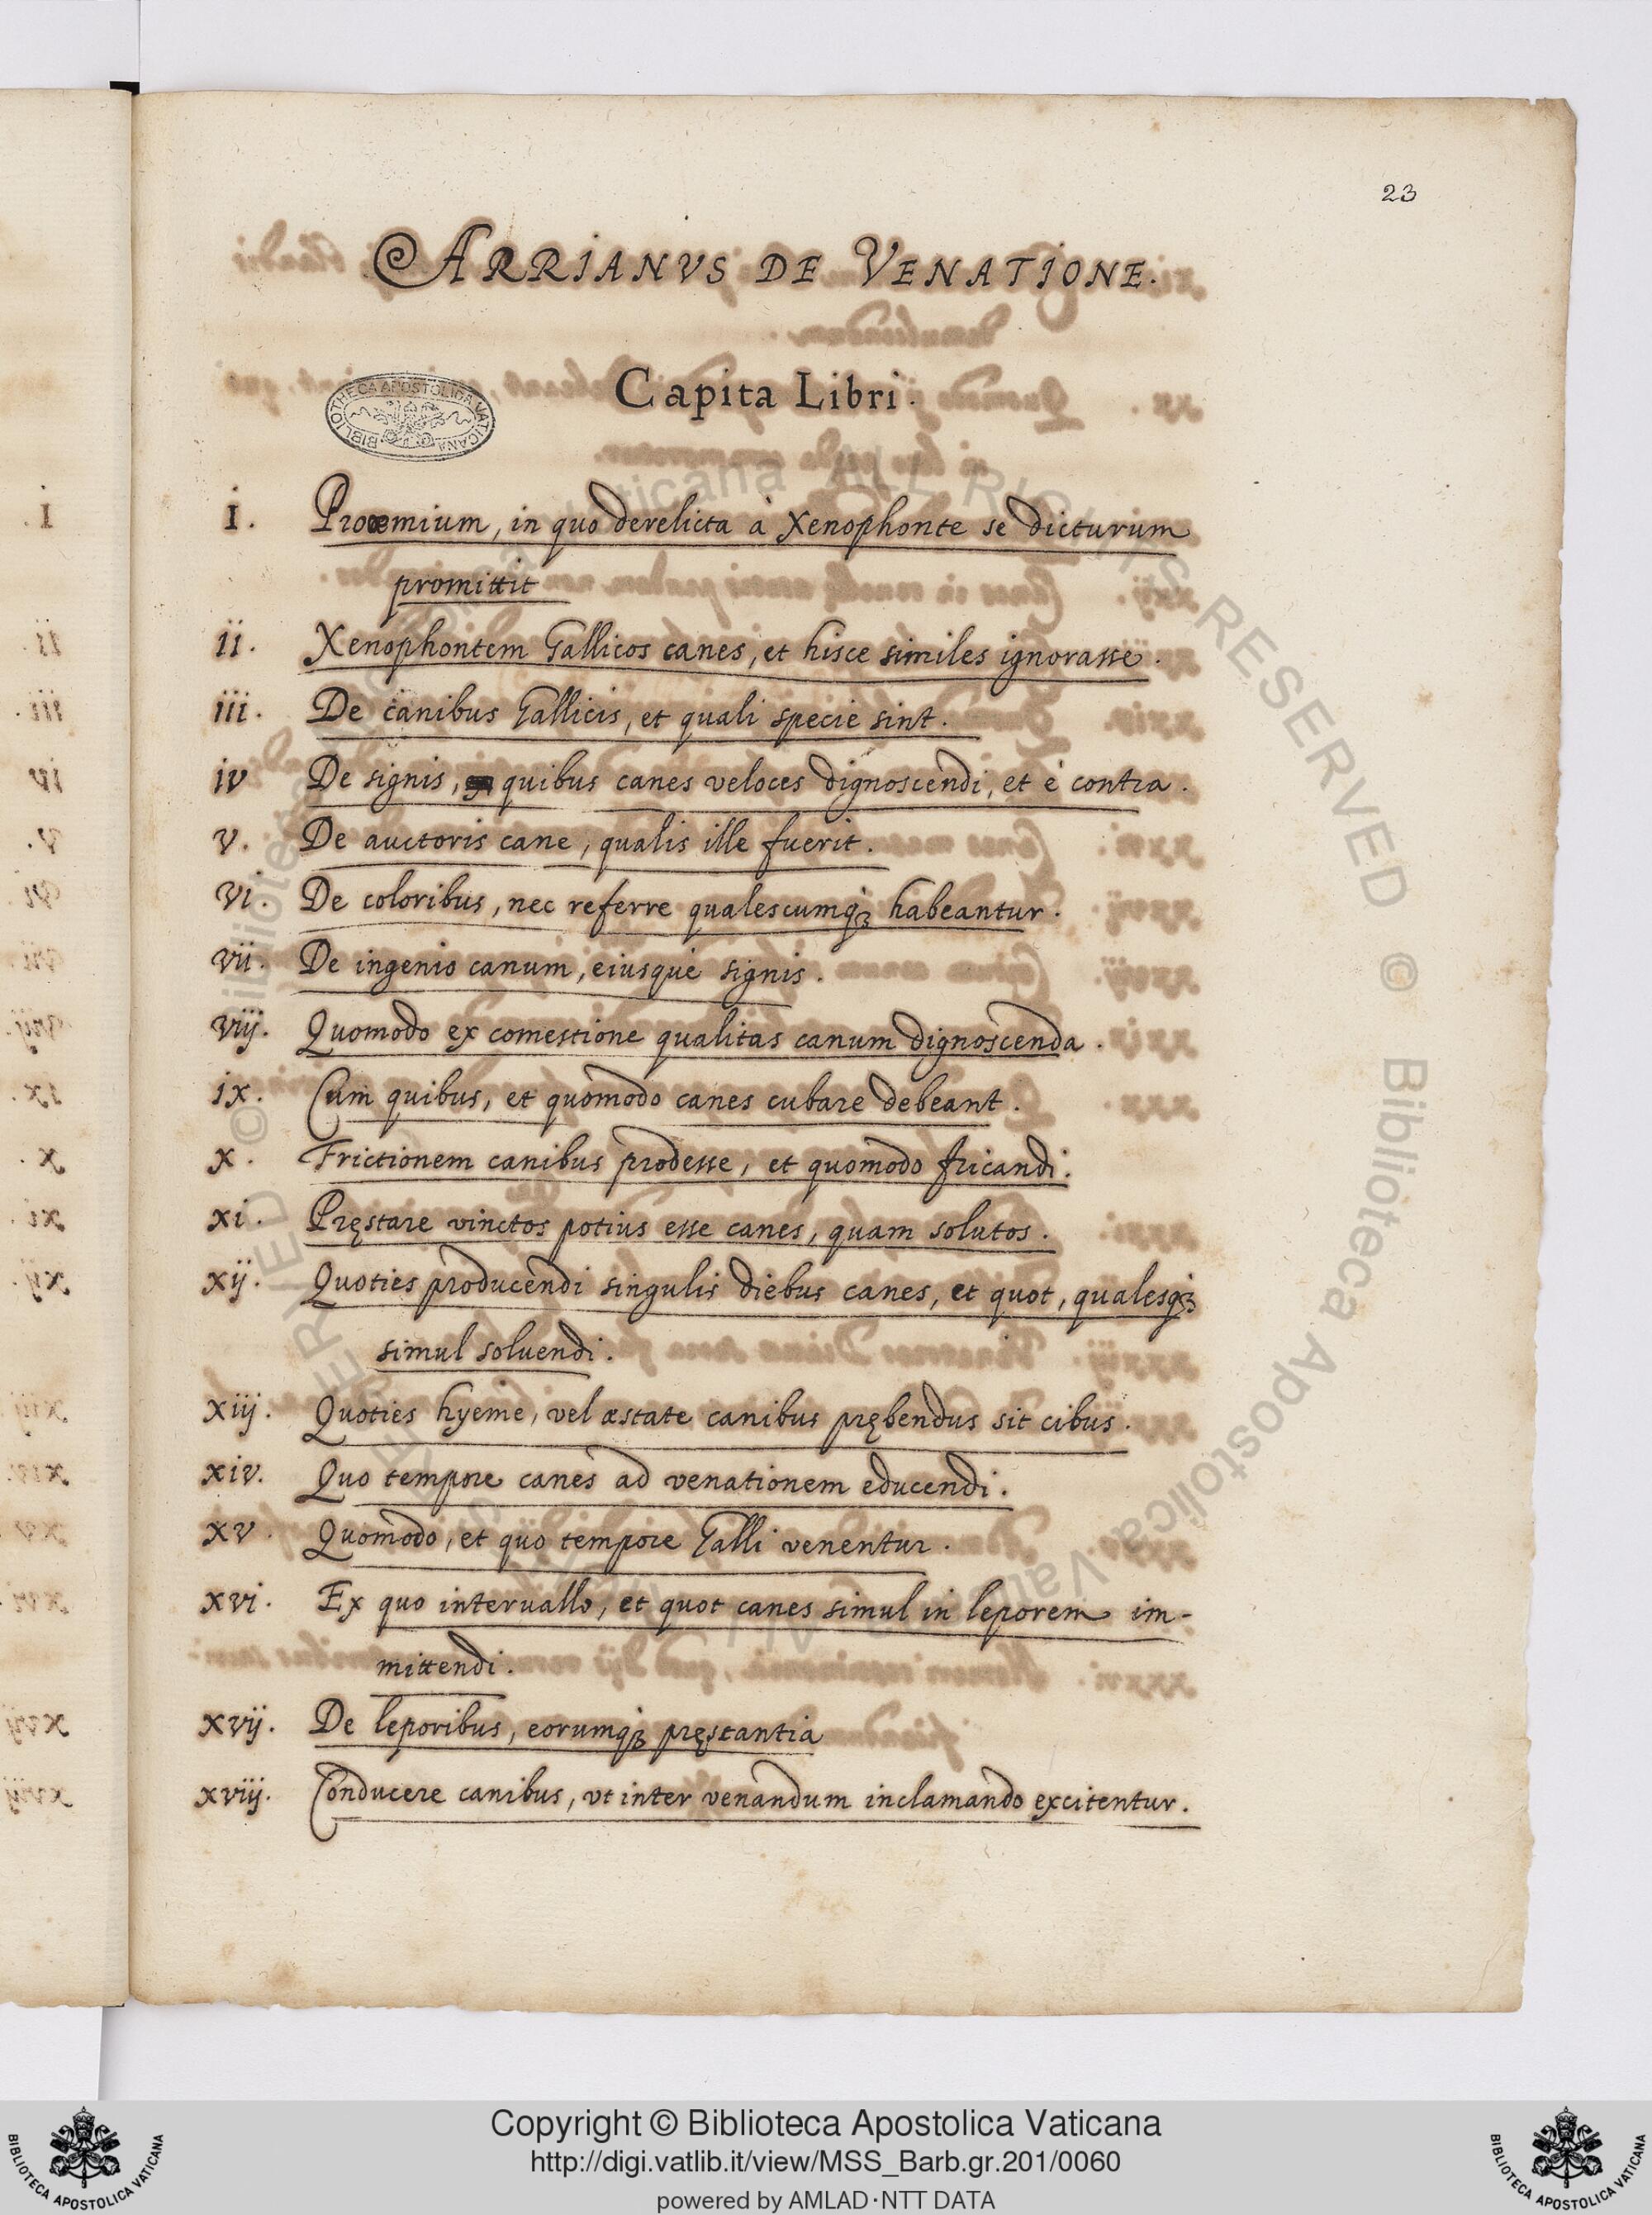 23
ARRIANVS DE VENATIONE.
Capita Libri.
BIBLIOTHECA APOSTOLICA VATICANA
I. Prooemium, in quo derelicta à Xenophonte se dicturum
promittit
ii. Xenophontem Gallicos canes, et hisce similes ignorasse.
iii. De canibus Gallicis, et quali specie sint.
iv De signis, quibus canes veloces dignoscendi, et è contra.
v. De auctoris cane, qualis ille fuerit.
vi. De coloribus, nec referre qualescumq̀ꝫ habeantur.
vii. De ingenio canum, eiusque signis.
viij. Quomodo ex comestione qualitas canum dignoscenda.
ix. Cum quibus, et quomodo canes cubare debeant.
x. Frictionem canibus prodesse, et quomodo fricandi.
xi. Pręstare vinctos potius esse canes, quam solutos.
xij. Quoties producendi singulis diebus canes, et quot, qualesq̀ꝫ
simul soluendi.
xiij. Quoties hyeme, vel æstate canibus prębendus sit cibus.
xiv. Quo tempore canes ad venationem educendi.
xv. Quomodo, et quo tempore Galli venentur.
xvi. Ex quo interuallo, et quot canes simul in leporem im-
mittendi.
xvij. De leporibus, eorumq̀ꝫ pręstantia
xviij. Conducere canibus, vt inter venandum inclamando excitentur.
© Biblioteca Apostolica Vaticana ALL RIGHTS RESERVED © Biblioteca Apostolica Vaticana ALL RIGHTS RESERVED
Copyright © Biblioteca Apostolica Vaticana
http://digi.vatlib.it/view/MSS_Barb.gr.201/0060
powered by AMLAD·NTT DATA
BIBLIOTECA APOSTOLICA VATICANA
BIBLIOTECA APOSTOLICA VATICANA